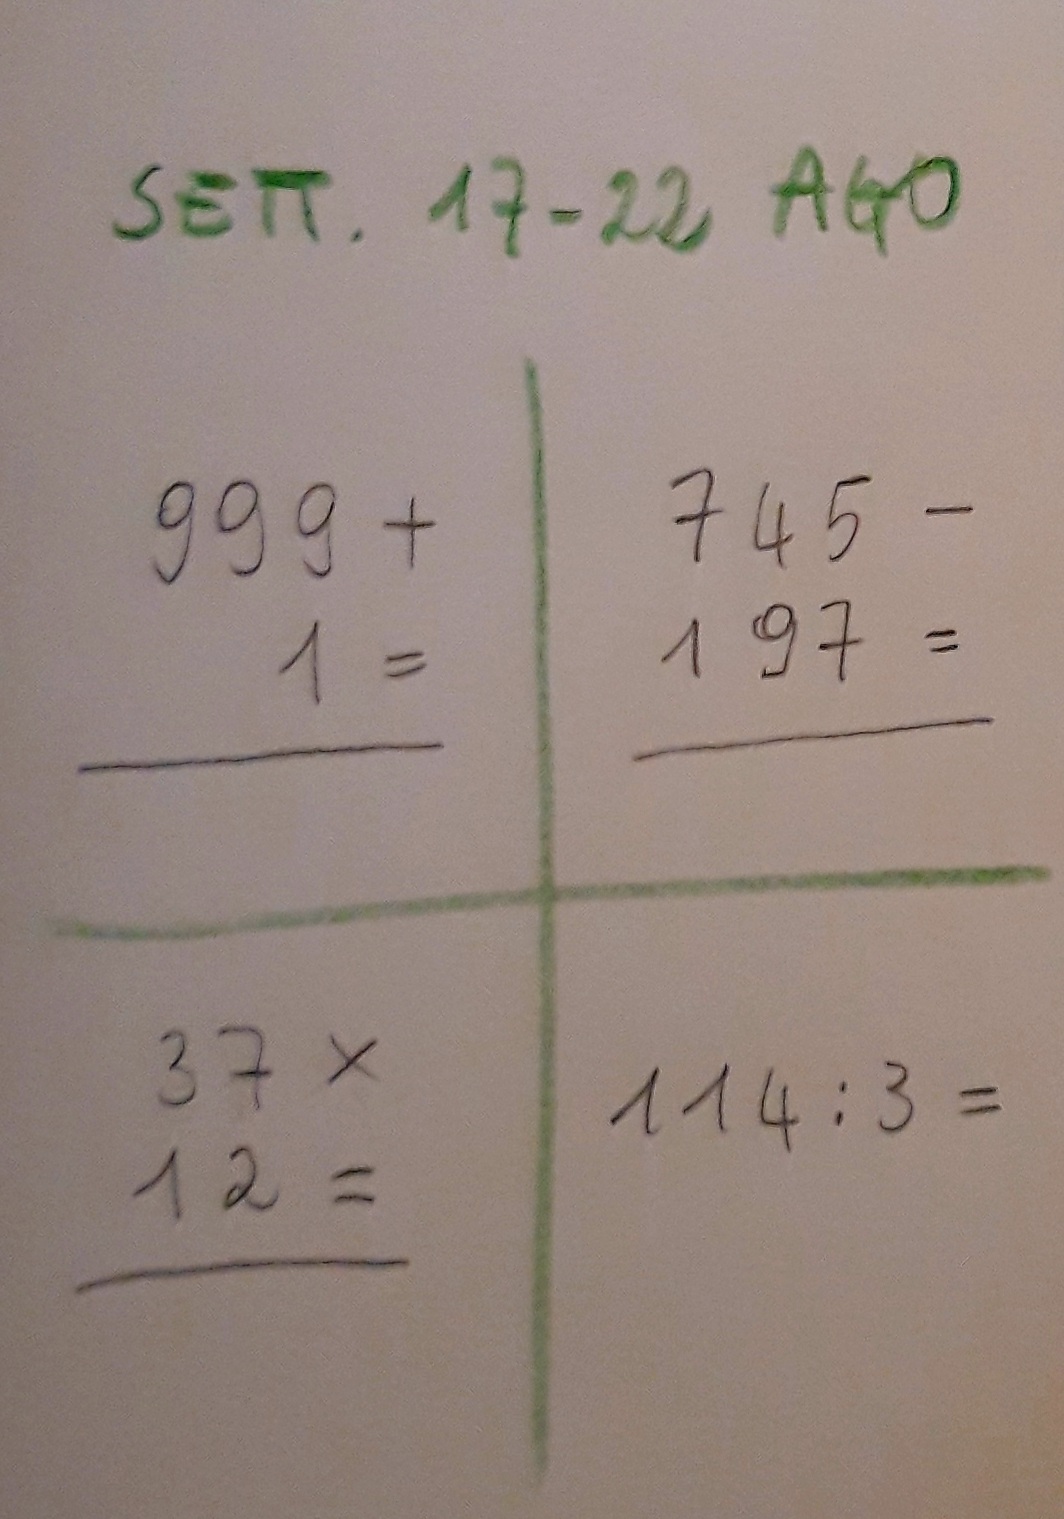 SETT. 17-22 AGO
999 +
1 =
745 -
197 =
37 x
12 =
114:3 =